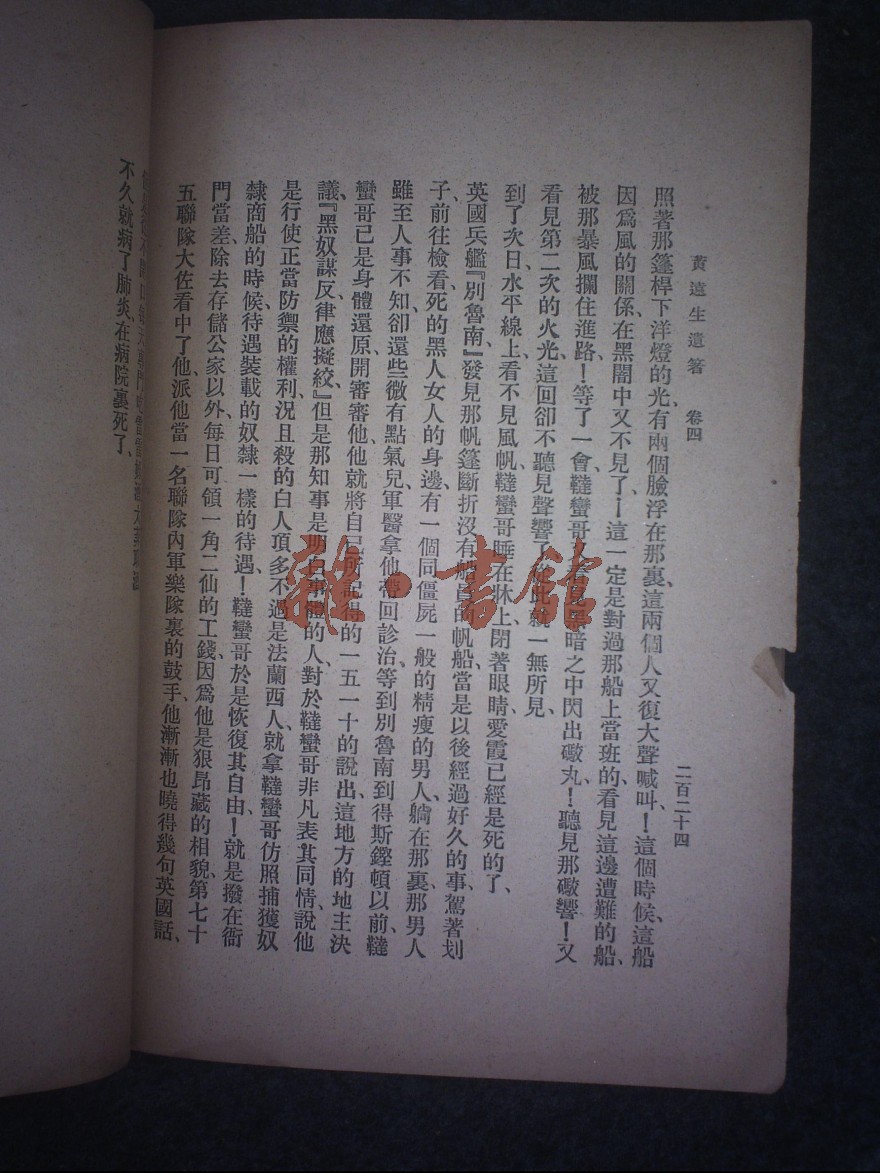 黃遠生遺著 卷四 二百二十四
照著那篷桿下洋燈的光、有兩個臉浮在那裏、這兩個人又復大聲喊叫!這個時候、這船
因爲風的關係、在黑闇中又不見了、——這一定是對過那船上當班的、看見這邊遭難的船、
被那暴風攔住進路!等了一會、韃蠻哥又看見黑暗之中閃出礮丸!聽見那礮響!又
看見第二次的火光、這回卻不聽見聲響了、從此就一無所見、
到了次日、水平線上、看不見風帆、韃蠻哥睡在牀上、閉著眼睛、愛霞已經是死的了、
英國兵艦『別魯南』發見那帆篷斷折沒有船員的帆船、當是以後經過好久的事、駕著划
子、前往檢看、死的黑人女人的身邊、有一個同僵屍一般的精瘦的男人、躺在那裏、那男人
雖至人事不知、卻還些微有點氣兒、軍醫拿他帶回診治、等到別魯南到得斯鏗頓以前、韃
蠻哥已是身體還原、開審審他、他就將自己所記得的、一五一十的說出、這地方的地主決
議、『黑奴謀反、律應擬絞』但是那知事是明白事體的人、對於韃蠻哥非凡表其同情、說他
是行使正當防禦的權利、況且殺的白人、頂多不過是法蘭西人、就拿韃蠻哥仿照捕獲奴
隸商船的時候、待遇裝載的奴隸一樣的待遇!韃蠻哥於是恢復其自由!就是撥在衙
門當差、除去存儲公家以外、每日可領一角二仙的工錢、因爲他是狠昂藏的相貌、第七十
五聯隊大佐看中了他、派他當一名聯隊內軍樂隊裏的鼓手、他漸漸也曉得幾句英國話、
不久就病了肺炎、在病院裏死了、
雜·書館